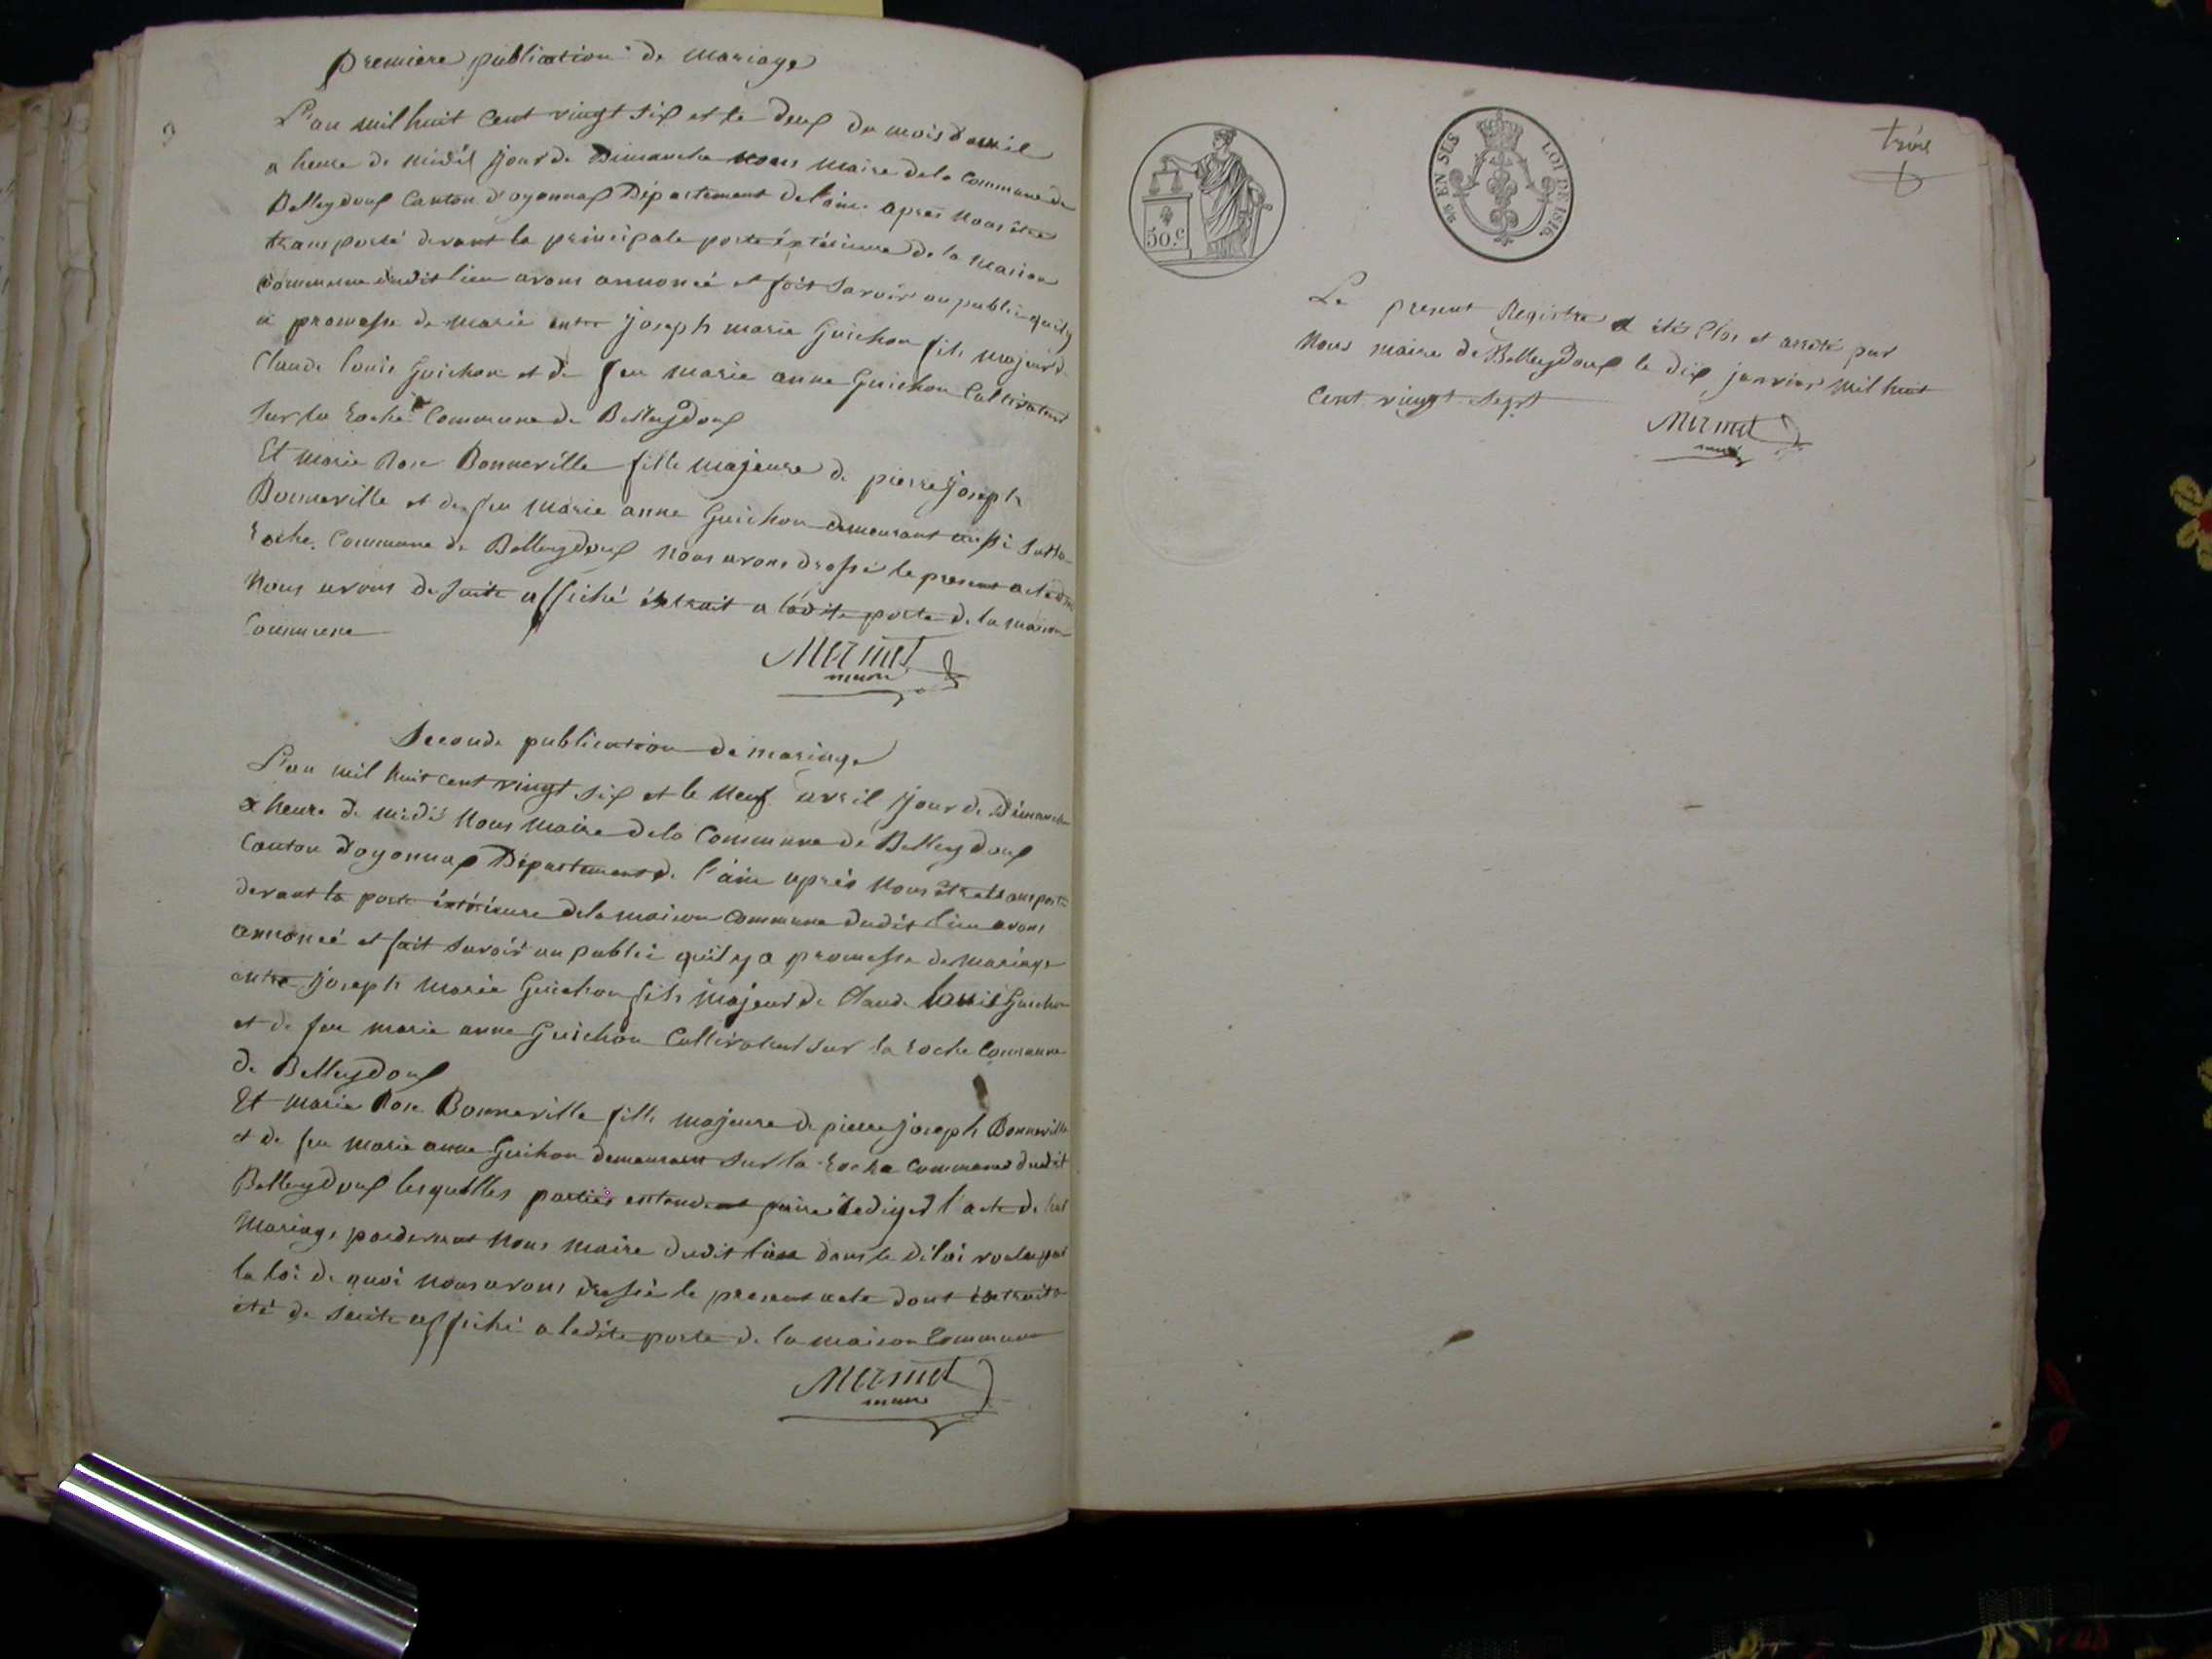 premiere publication de mariage
L'an mil huit cent vingt six et le deux du mois d'avril
a heure de midi jour de Dimanche nous maire de la commune de
Belleydoux Canton d'oyonnax Département de l'ain après nous être
transporté devant la principale porte éxtérieure de la maison
commune dudit lieu avons annoncé et fait savoir au public quil y
a promesse de marié entre joseph marie Guichon fils majeur de
Claude louis Guichon et de feu marie anne Guichon Cultivateur
sur la Roche Commune de Belleydoux
Et marie Rose Bonneville fille majeure de pierre joseph
Bonneville et de feu marie anne Guichon demeurant aussi sur la
Roche Commune de Belleydoux nous avons dressé le present acte
Nous avons de suite affiché éxtrait a ladite porte de la maison
Commune
Mermet
maire
Seconde publication de mariage
L'an mil huit cent vingt six et le neuf avril jour de Dimanche
a heure de midi Nous Maire de la Commune de Belleydoux
Canton d'oyonnax Département de l'ain après nous être transporté
devant la porte éxtérieure de la maison commune dudit lieu avons
annoncé et fait savoir au public quil y a promesse de mariage
entre joseph marie Guichon fils majeur de Claude louis Guichon
et de feu marie anne Guichon Cultivateur sur la Roche Commune
de Belleydoux
Et marie Rose Bonneville fille majeure de pierre joseph Bonneville
et de feu marie anne Guihon demeurant sur la Roche Commune dudit
Belleydoux lesquelles parties entendent faire rediger l'acte de
Mariage pardevant Nous maire dudit lieu dans le délai voulu par
la loi de quoi nous avons dressé le present acte dont éxtrait a
été de suite affiché a ladite porte de la maison Commune
Mermet
maire
50.c
EN SUS
LOI DE 1816.
Le present Registre a été Clos et arreté par
Nous maire de Belleydoux le dix janvier mil huit
Cent vingt sept
Mermet
maire